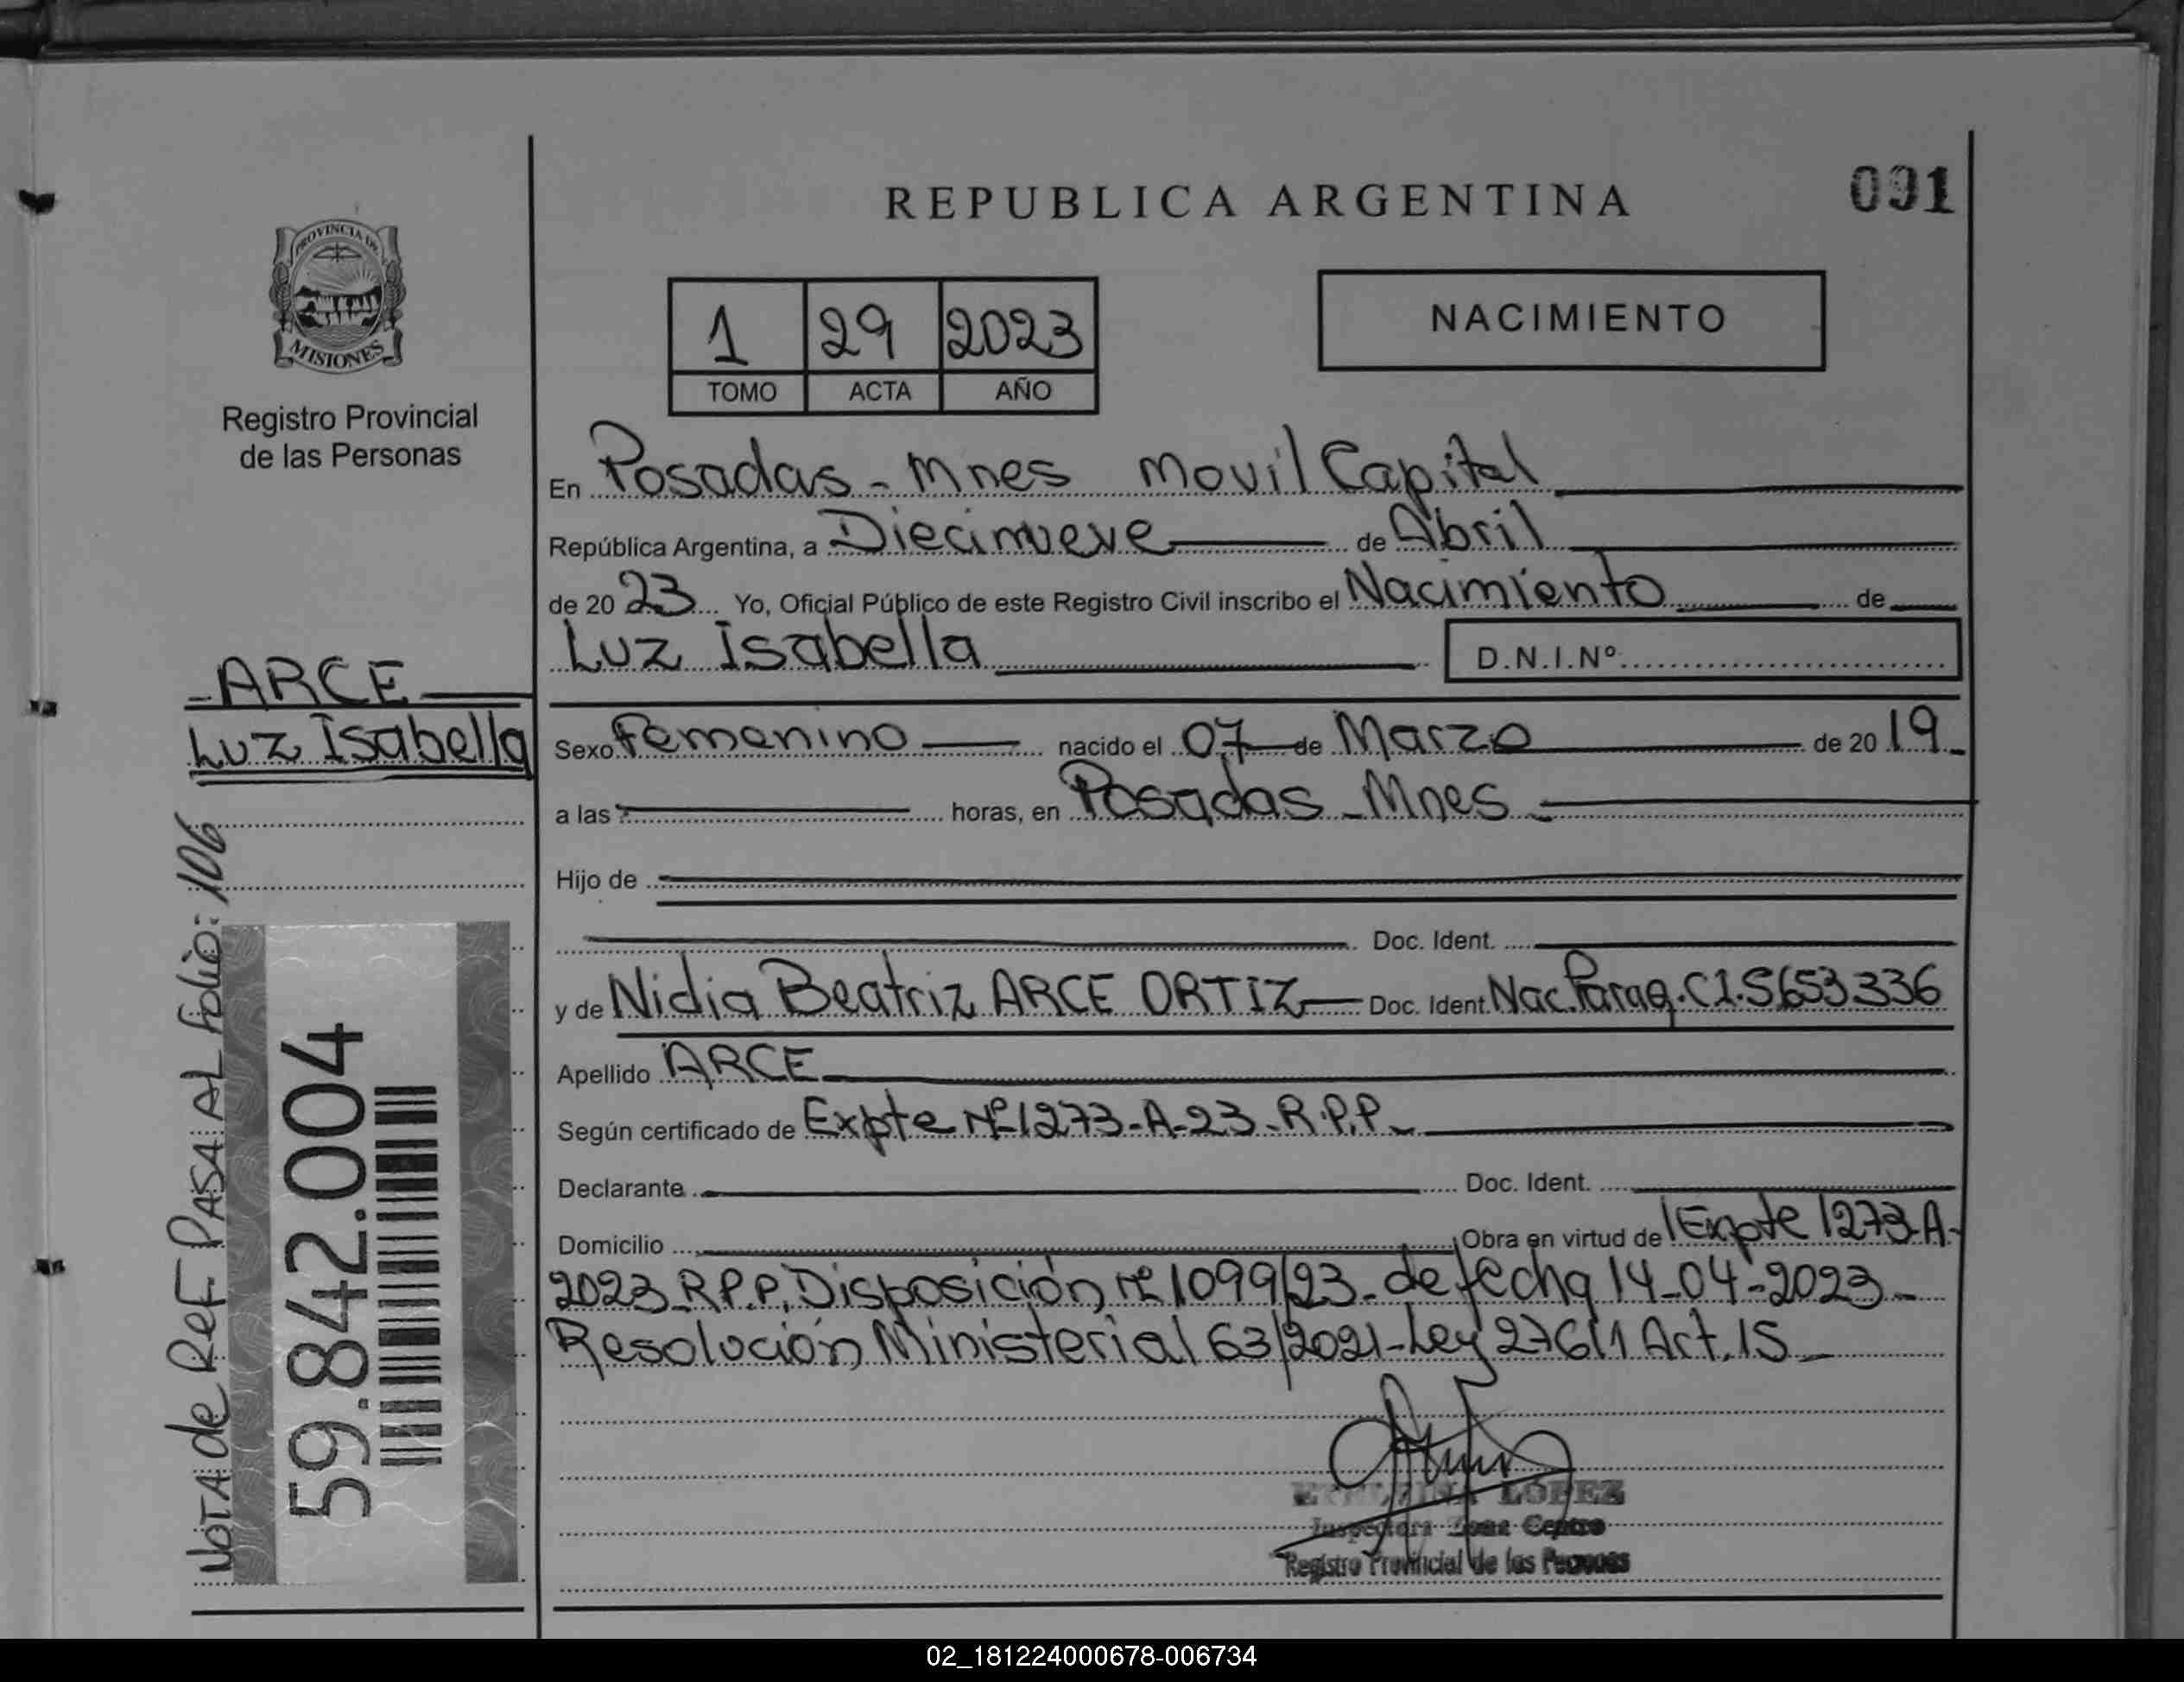 REPUBLICA ARGENTINA
091
PROVINCIA DE
MISIONES
Registro Provincial
de las Personas
1 29 2023
TOMO ACTA AÑO
NACIMIENTO
En Posadas - Mnes Movil Capital
República Argentina, a Diecinueve de Abril
de 20 23 Yo, Oficial Público de este Registro Civil inscribo el Nacimiento de
Luz Isabella D.N.I.Nº
ARCE
Luz Isabella
Sexo Femenino nacido el 07 de Marzo de 20 19
a las horas, en Posadas - Mnes
Hijo de
Doc. Ident.
y de Nidia Beatriz ARCE ORTIZ Doc. Ident. Nac. Parag. C1.5653336
Apellido ARCE
Según certificado de Expte Nº 1273-A-23-R.P.P.
Declarante Doc. Ident.
Domicilio Obra en virtud de Expte 1273-A-
2023-R.P.P. Disposición Nº 1099/23- de fecha 14-04-2023-
Resolución Ministerial 63/2021-Ley 27611 Art. 15
NOTA de ReF PASA AL Folio: 106
59.842.004
LOPEZ
Inspectora Zona Centro
Registro Provincial de las Personas
02_181224000678-006734